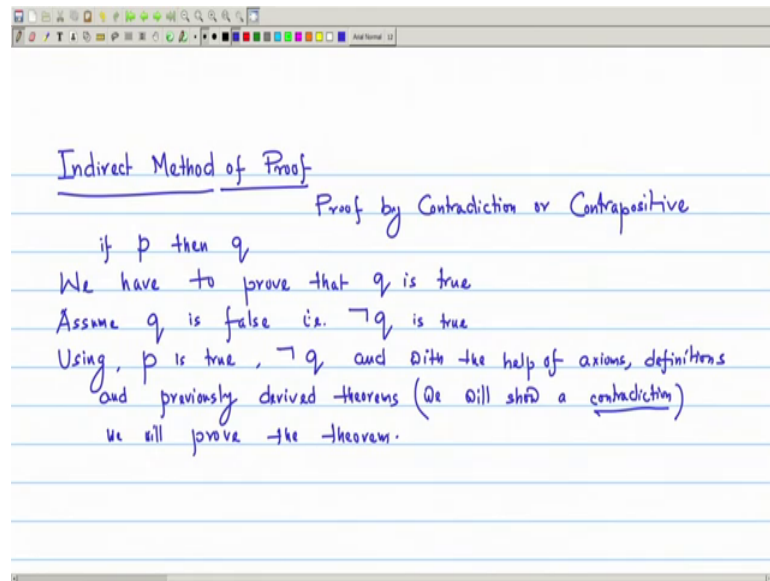 Arial Normal 12
Indirect Method of Proof
Proof by Contradiction or Contrapositive
if p then q
We have to prove that q is true
Assume q is false i.e. ¬q is true
Using, p is true, ¬q and with the help of axioms, definitions
and previously derived theorems (We will show a contradiction)
We will prove the theorem.